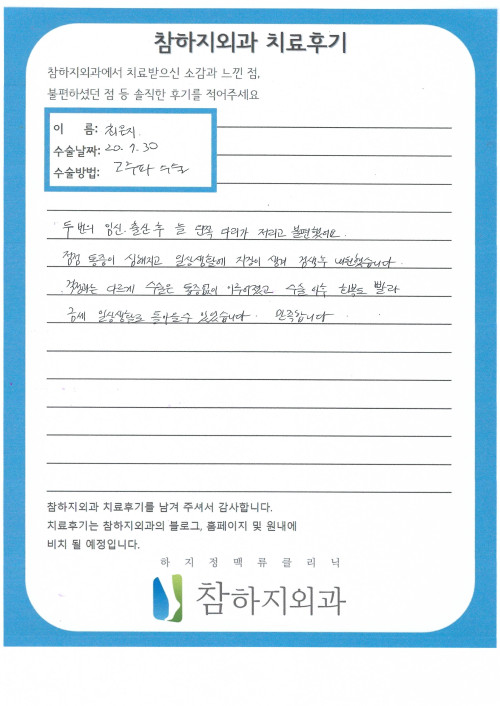 참하지외과 치료후기
참하지외과에서 치료받으신 소감과 느낀 점,
불편하셨던 점 등 솔직한 후기를 적어주세요
이 름: 최은지
수술날짜: 20. 7. 30
수술방법: 고주파 수술
두번의 임신·출산 후 늘 왼쪽 다리가 저리고 불편했어요.
점점 통증이 심해지고 일상생활에 지장이 생겨 검색후 내원했습니다.
걱정과는 다르게 수술은 통증없이 이루어졌고 수술 이후 회복도 빨라
금세 일상생활로 돌아올수 있었습니다. 만족합니다
참하지외과 치료후기를 남겨 주셔서 감사합니다.
치료후기는 참하지외과의 블로그, 홈페이지 및 원내에
비치 될 예정입니다.
하지정맥류클리닉
참하지외과